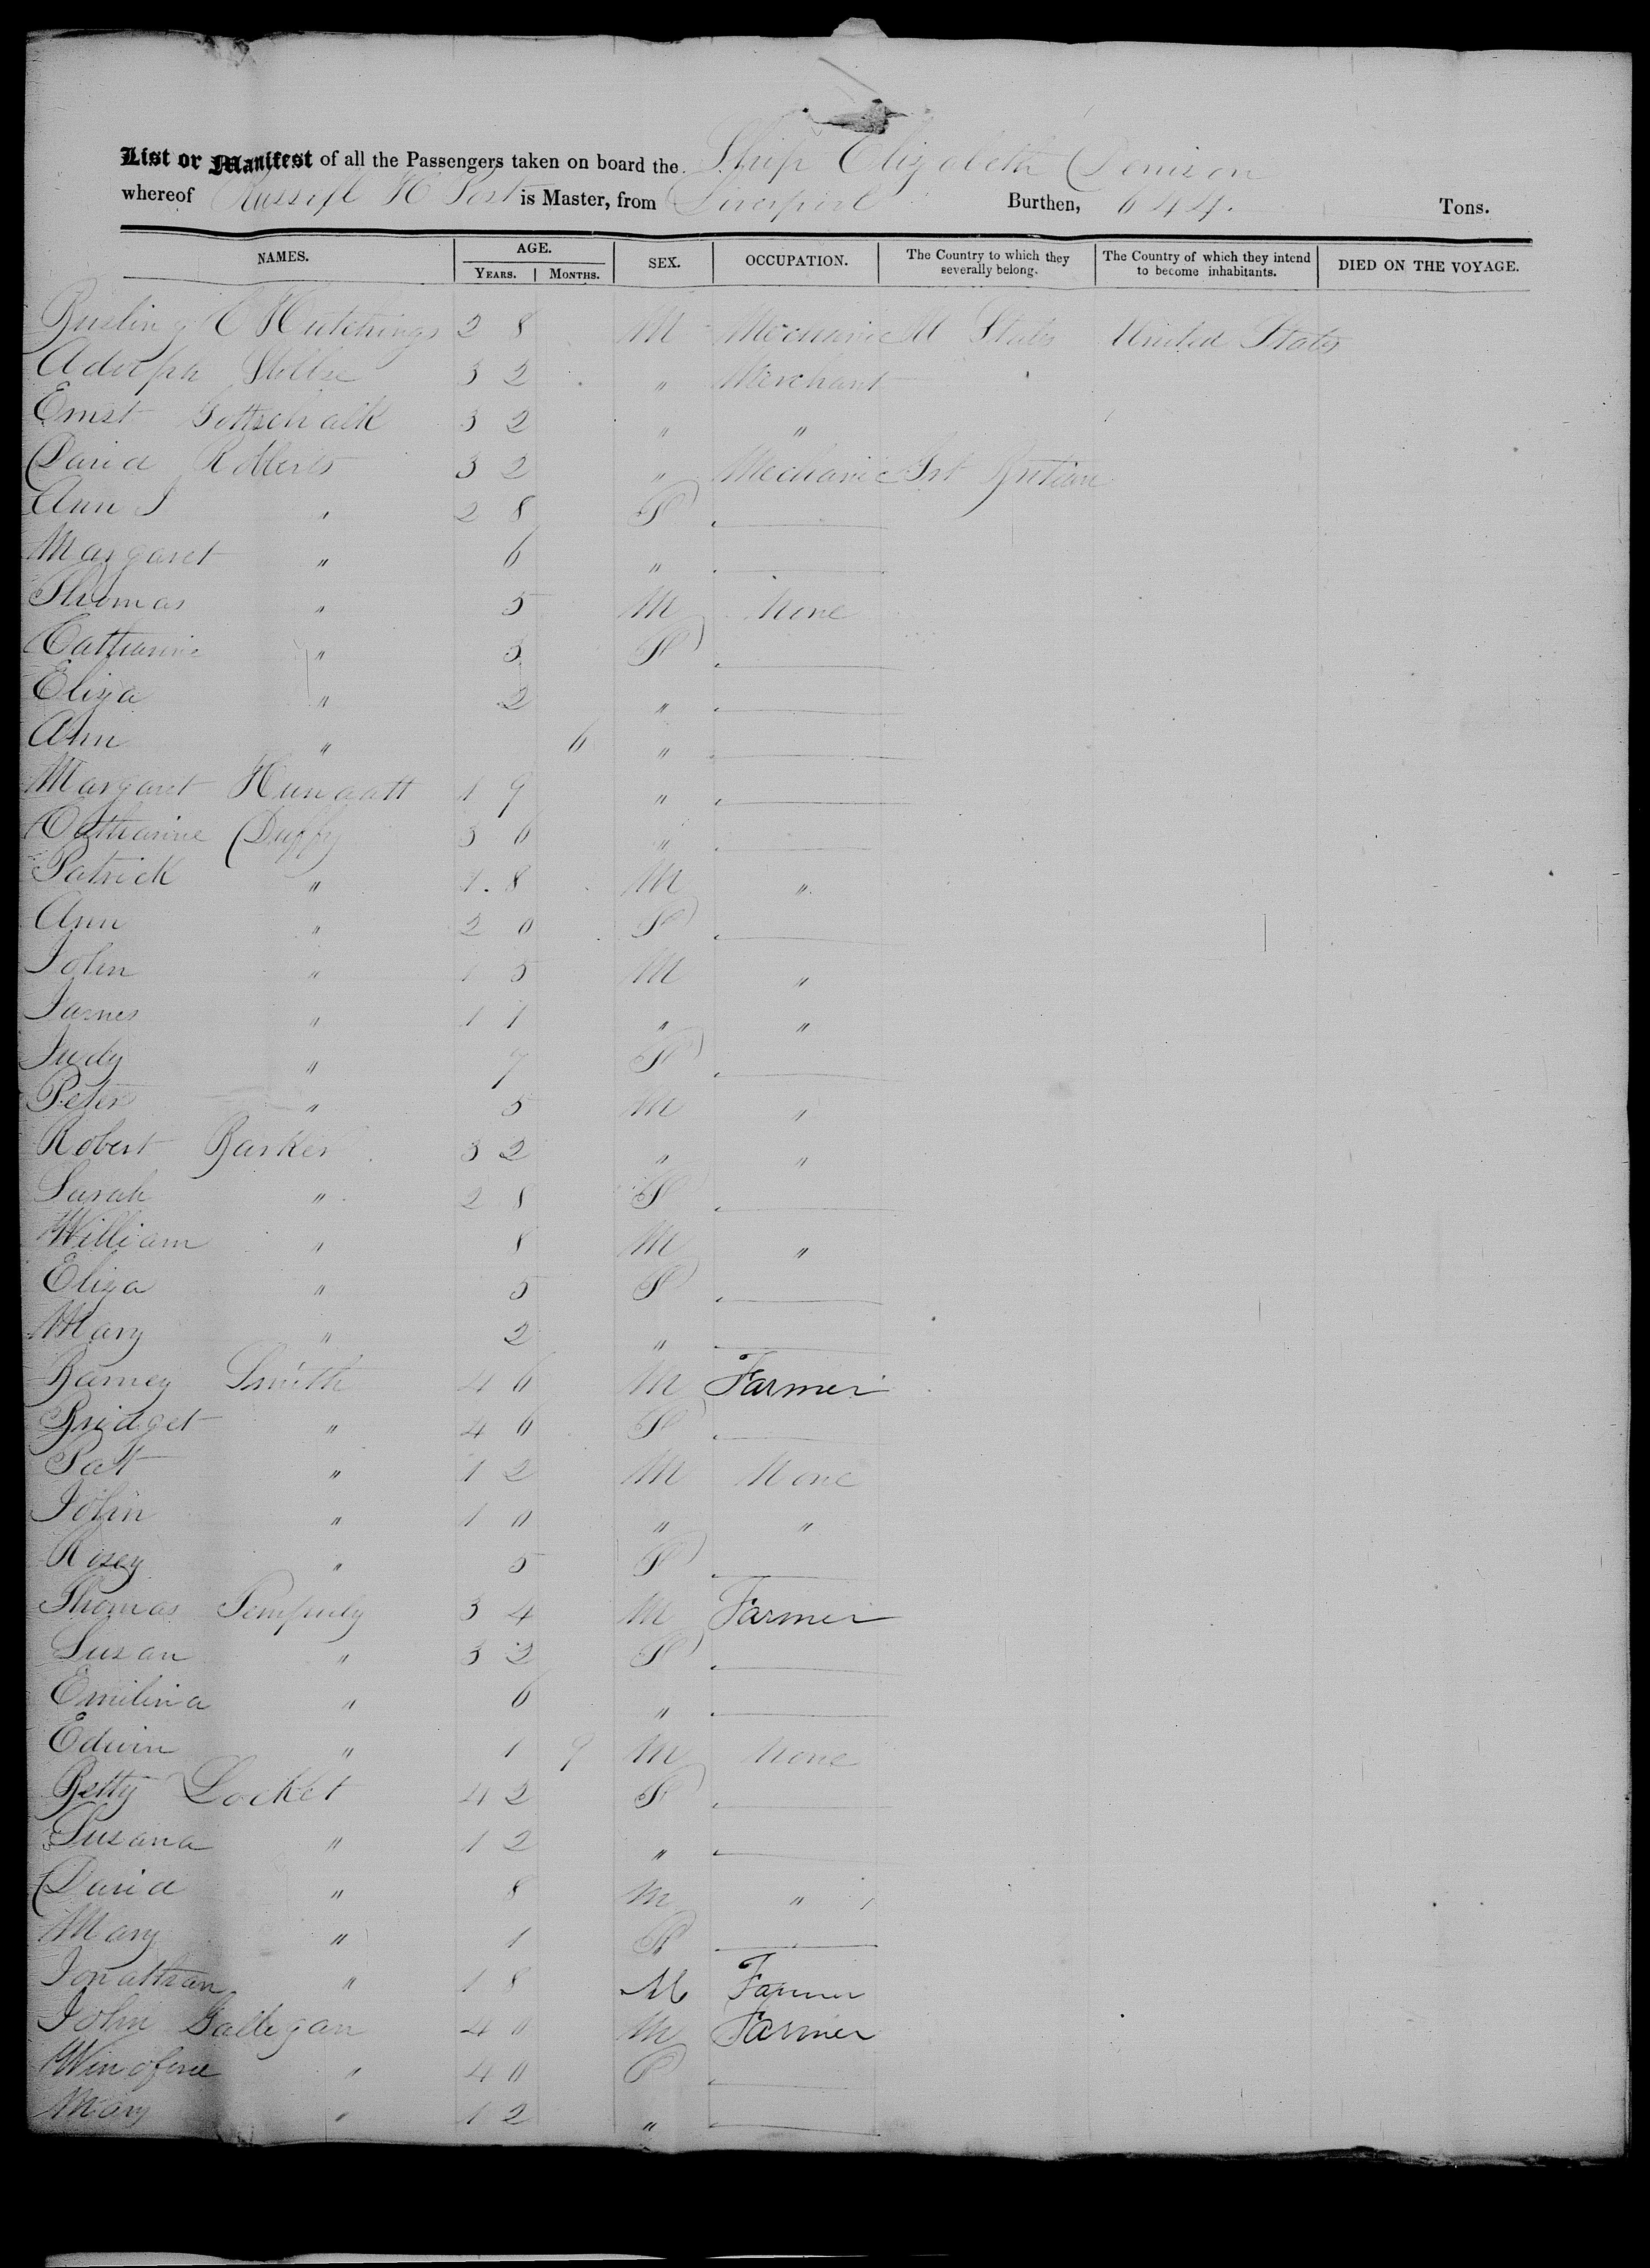 List or Manifest of all the Passengers taken on board the Ship Elizabeth Denison
whereof Russell H Post is Master, from Liverpool Burthen, 644. Tons.
NAMES. AGE. YEARS. MONTHS. SEX. OCCUPATION. The Country to which they severally belong. The Country of which they intend to become inhabitants. DIED ON THE VOYAGE.
C Hutchings 28 M Mechanic U States United States
Adolph 32 " Merchant
Ernst Gottschalk 32 " "
David Roberts 32 " Mechanic Grt Britian
Ann S " 28 F
Margaret " 6 "
Thomas " 5 M None
Catharine " 3 F
Eliza " 2 "
Ann " 6 "
Margaret 19 "
Catharine Duffy 36 "
Patrick " 18 M "
Ann " 20 F
John " 15 M "
James " 11 " "
Judy " 9 F
Peter " 5 M "
Robert Barker 32 " "
Sarah " 28 F
William " 8 M "
Eliza " 5 F
Mary " 2 "
Barney Smith 46 M Farmer
Bridget " 40 F
Pat " 12 M None
John " 10 " "
Rosey " 5 F
Thomas 34 M Farmer
Susan " 32 F
Emilina " 6 "
Edwin " 1 9 M None
Betty Locket 42 F
Susana " 12 "
David " 8 M "
Mary " 1 F
Jonathan " 18 M Farmer
John Gallegan 40 M Farmer
Winofine " 40 F
Mary " 12 "